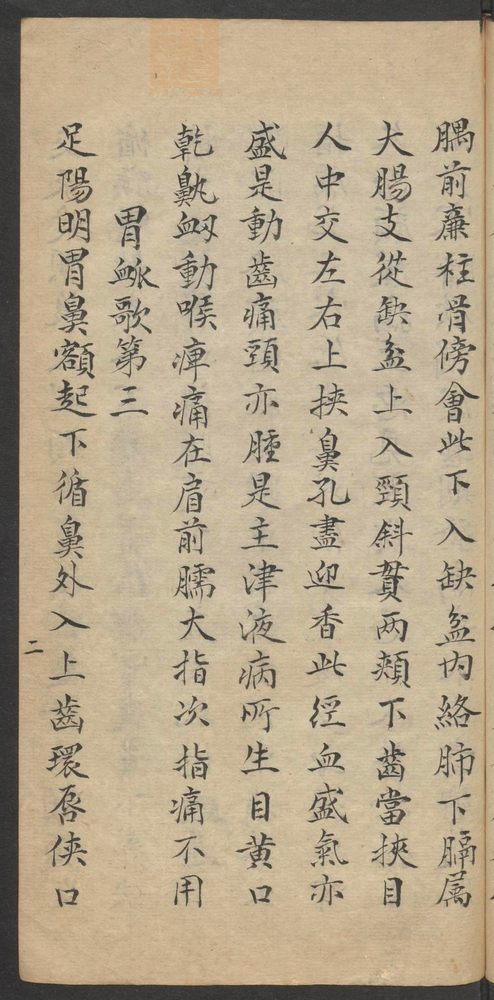 腢前廉柱骨傍會此下入缺盆内絡肺下膈属
大腸支從缺盆上入頸斜貫两頰下齒當挾目
人中交左右上挾鼻孔盡迎香此經血盛氣亦
盛是動齒痛頸亦腫是主津液病所生目黄口
乾鼽衂動喉痺痛在肩前臑大指次指痛不用
胃脉歌第三
足陽明胃鼻額起下循鼻外入上齒環唇侠口
二